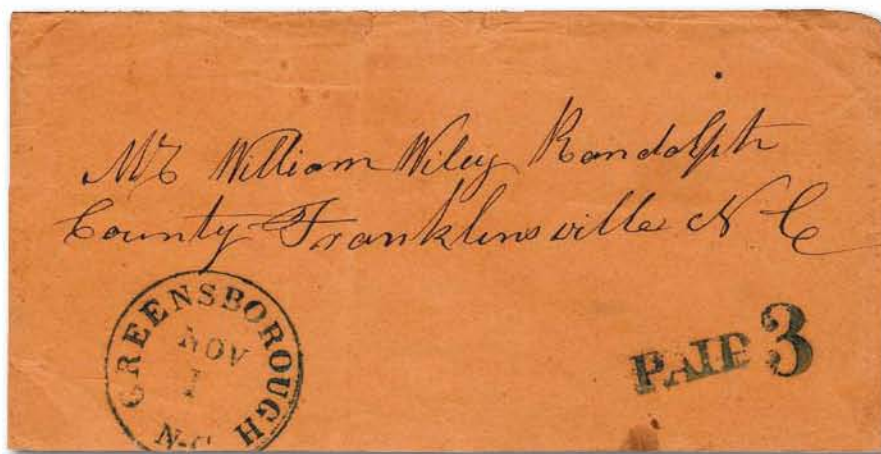 Mr William Wiley Randolph
County Franklinsville N C
GREENSBOROUGH N.C.
NOV
1
PAID 3